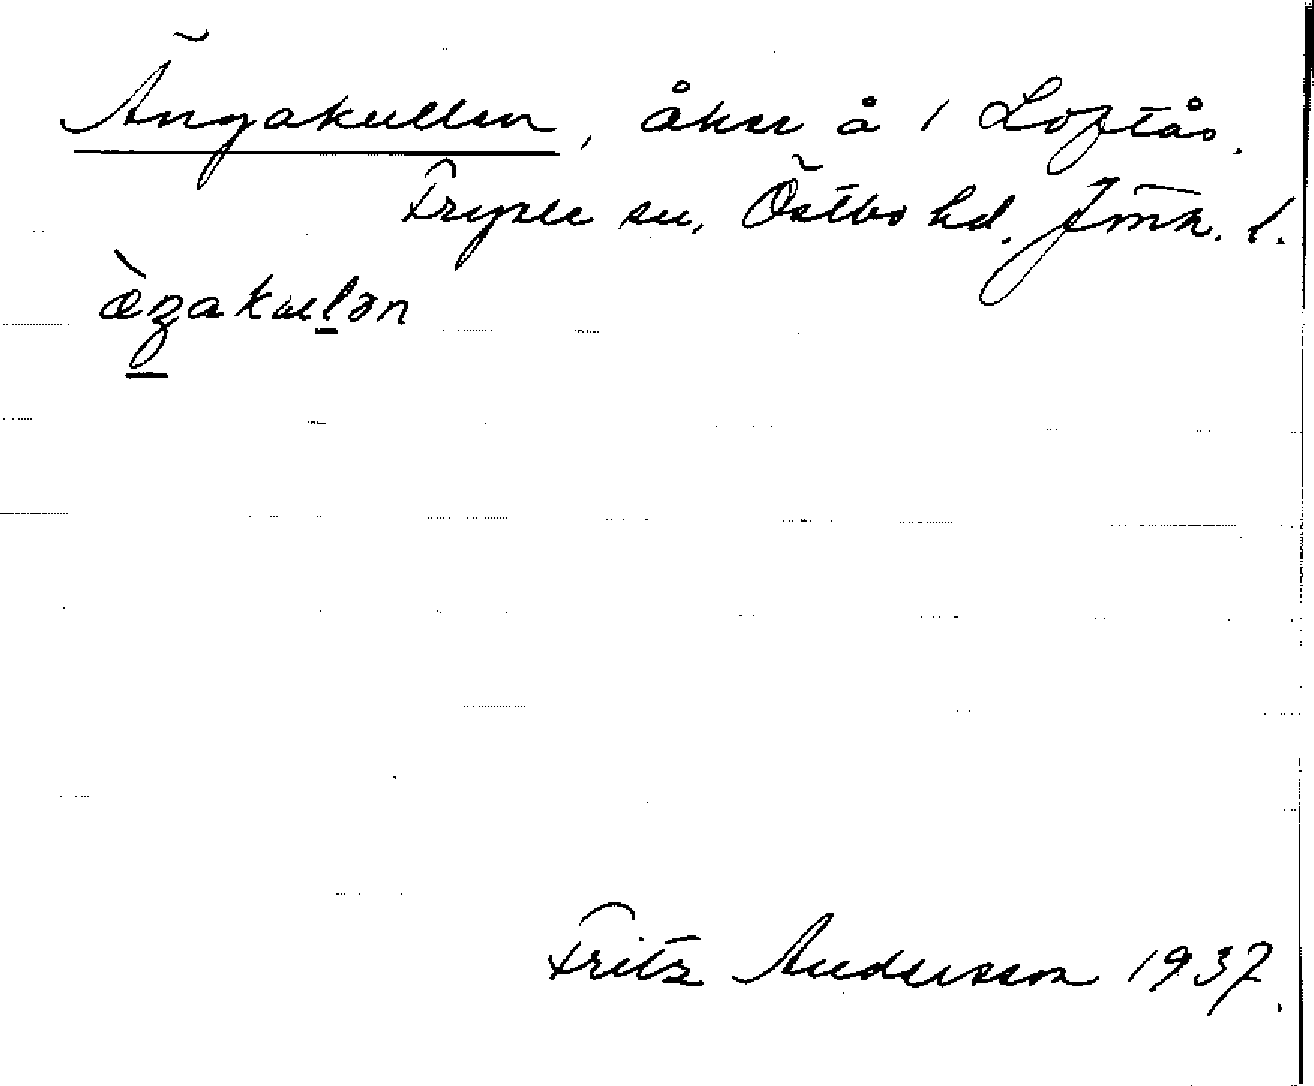 Ängakullen, åker å 1 Loftås.
Fryele sn, Östbo hd. Jmk. l.
æ̀ŋakuḻən
Fritz Andersson 1937.